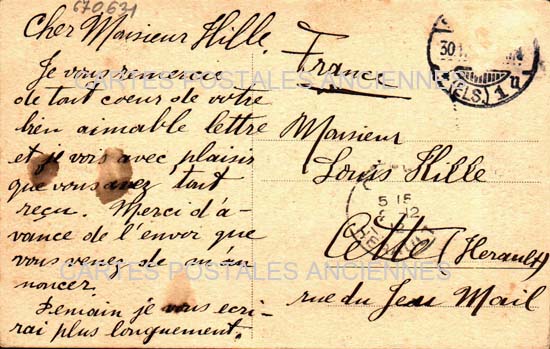 670,631
Cher Monsieur Hille,
Je vous remercie
de tout coeur de votre
bien aimable lettre
et je vois avec plaisir
que vous avez tout
reçu. Merci d'a-
vance de l'envoi que
vous venez de m'an
noncer.
Demain je vous ecri-
rai plus longuement.
France
Monsieur
Louis Hille
Cette (Herault)
rue du Jeu Mail
30.1
(ELS.) 1 u
5 15
12
CARTES POSTALES ANCIENNES
CARTES POSTALES ANCIENNES